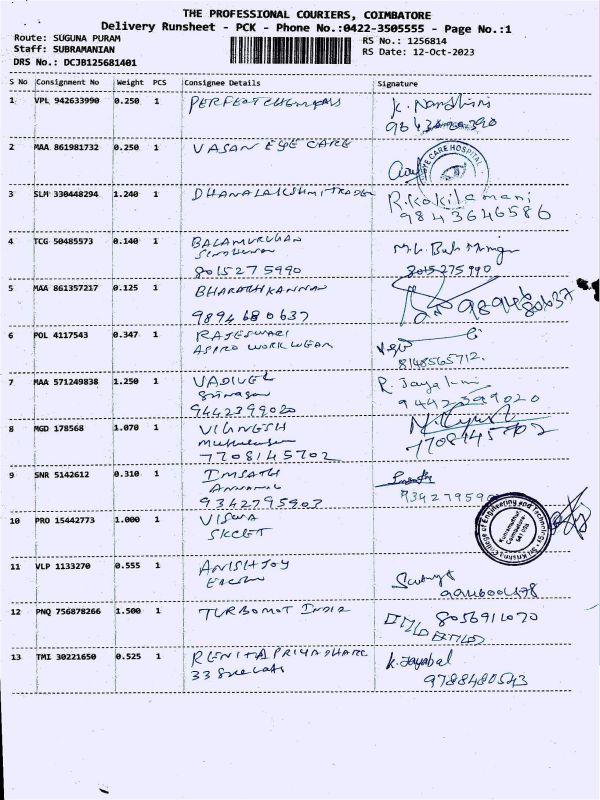 THE PROFESSIONAL COURIERS, COIMBATORE
Delivery Runsheet - PCK - Phone No.:0422-3505555 - Page No.:1
Route: SUGUNA PURAM RS No.: 1256814
Staff: SUBRAMANIAN RS Date: 12-Oct-2023
DRS No.: DCJB125681401
S No Consignment No Weight PCS Consignee Details Signature
1 VPL 942633990 0.250 1 K. Nandhini
2 MAA 861981732 0.250 1 VASAN EYE CARE
EYE CARE HOSPITAL
3 SLM 330448294 1.240 1 DHANALAKSHMI TRADER R. Kokilamani
9843646586
4 TCG 50485573 0.140 1 BALAMURUGAN
8015275990 8015275990
5 MAA 861357217 0.125 1 BHARATHKANNAN
9894680637 9894680637
6 POL 4117543 0.347 1 RAJESWARI
ASPRO WORK WEAR 8148565712.
7 MAA 571249838 1.250 1 VADIVEL R. Jayalumi
9442399020 9442399020
8 MGD 178568 1.070 1 VIGNESH
7708145702 7708145702
9 SNR 5142612 0.310 1 IMSATH
9342795907 93427959
10 PRO 15442773 1.000 1 VISWA
SKCET
Sri Krishna College of Engineering and Technology
Kuniamuthur, Coimbatore- 641 008
11 VLP 1133270 0.555 1 ANISH JOY
12 PNQ 756878266 1.500 1 TURBOMOT INDIA 8056911070
13 TMI 30221650 0.525 1 RENITA PRIYADHARE K. Jayabal
33 9788480543